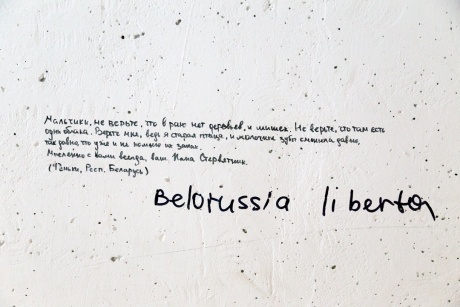 Мальчики, не верьте, что в раю нет деревьев, и шишек. Не верьте, что там есть
одни облака. Верьте мне, ведь я старая птица, и молочные зубы сменила давно,
так давно что уже и не помню их запах.
Мысленно с вами всегда, ваш Папа Стервятник.
Респ. Беларусь)
Belorussia